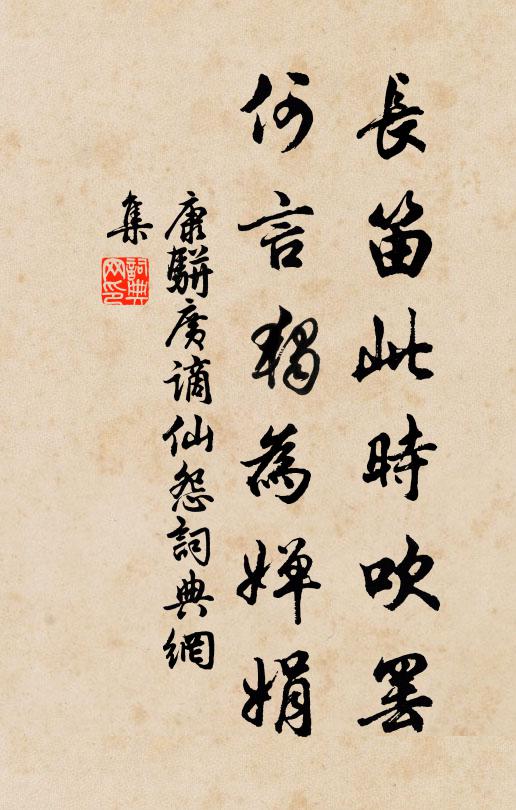 長笛此時吹罷
何言獨為嬋娟
康駢廣謫仙怨詞典網
集
詞典網印